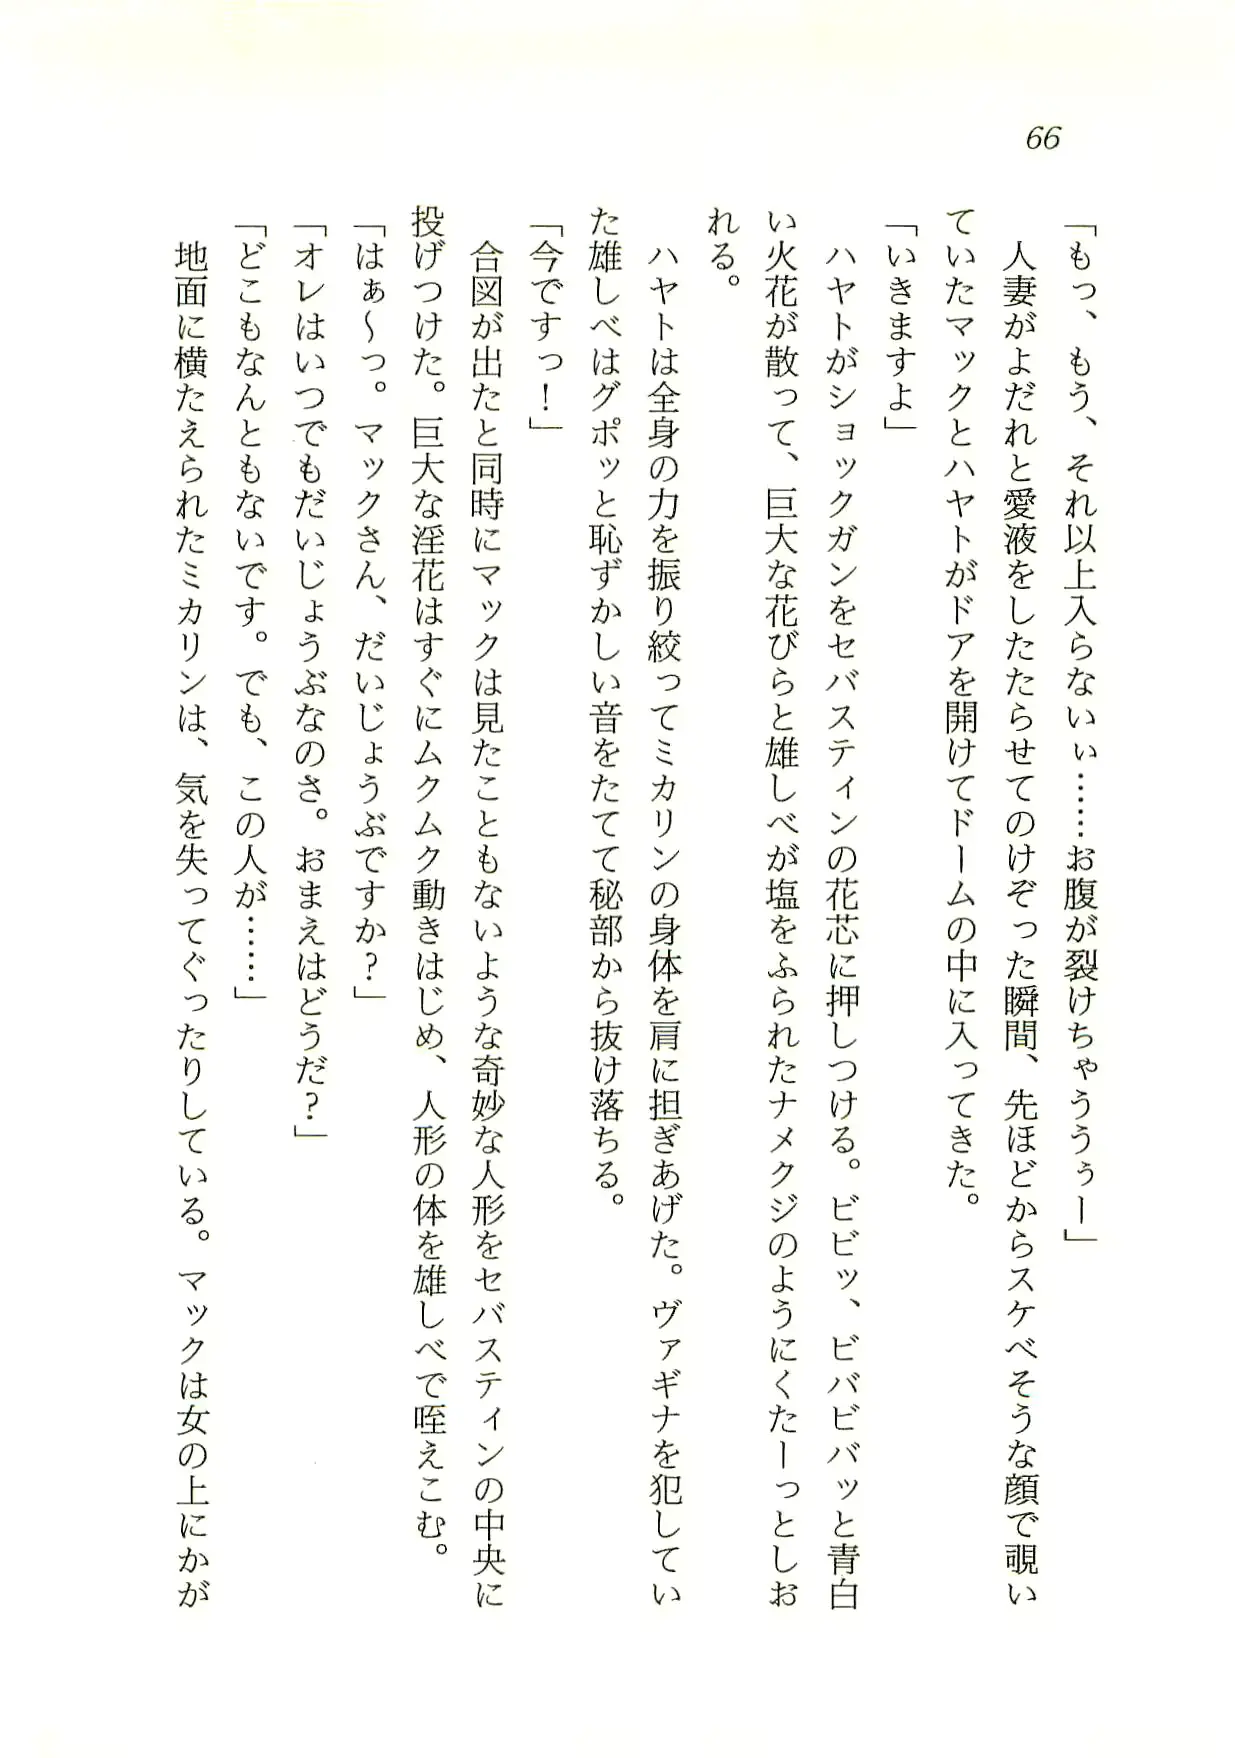 66
「もっ、もう、それ以上入らないぃ……お腹が裂けちゃううぅー」
人妻がよだれと愛液をしたたらせてのけぞった瞬間、先ほどからスケベそうな顔で覗い
ていたマックとハヤトがドアを開けてドームの中に入ってきた。
「いきますよ」
ハヤトがショックガンをセバスティンの花芯に押しつける。ビビッ、ビバビバッと青白
い火花が散って、巨大な花びらと雄しべが塩をふられたナメクジのようにくたーっとしお
れる。
ハヤトは全身の力を振り絞ってミカリンの身体を肩に担ぎあげた。ヴァギナを犯してい
た雄しべはグポッと恥ずかしい音をたてて秘部から抜け落ちる。
「今ですっ！」
合図が出たと同時にマックは見たこともないような奇妙な人形をセバスティンの中央に
投げつけた。巨大な淫花はすぐにムクムク動きはじめ、人形の体を雄しべで咥えこむ。
「はぁ～っ。マックさん、だいじょうぶですか？」
「オレはいつでもだいじょうぶなのさ。おまえはどうだ？」
「どこもなんともないです。でも、この人が……」
地面に横たえられたミカリンは、気を失ってぐったりしている。マックは女の上にかが